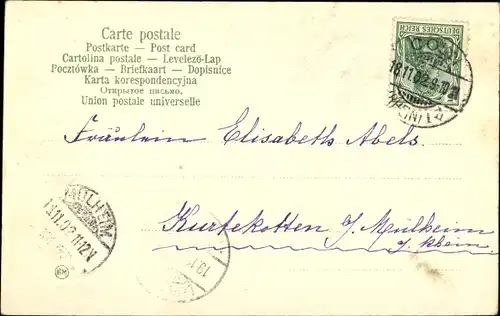 Carte postale
Postkarte — Post card
Cartolina postale — Levelező-Lap
Pocztówka — Briefkaart — Dopisnice
Karta korespondencyjna
Открытое письмо.
Union postale universelle
DEUTSCHES REICH
Fräulein Elisabeth Abels.
MÜLHEIM
Kurtekotten b/ Mülheim